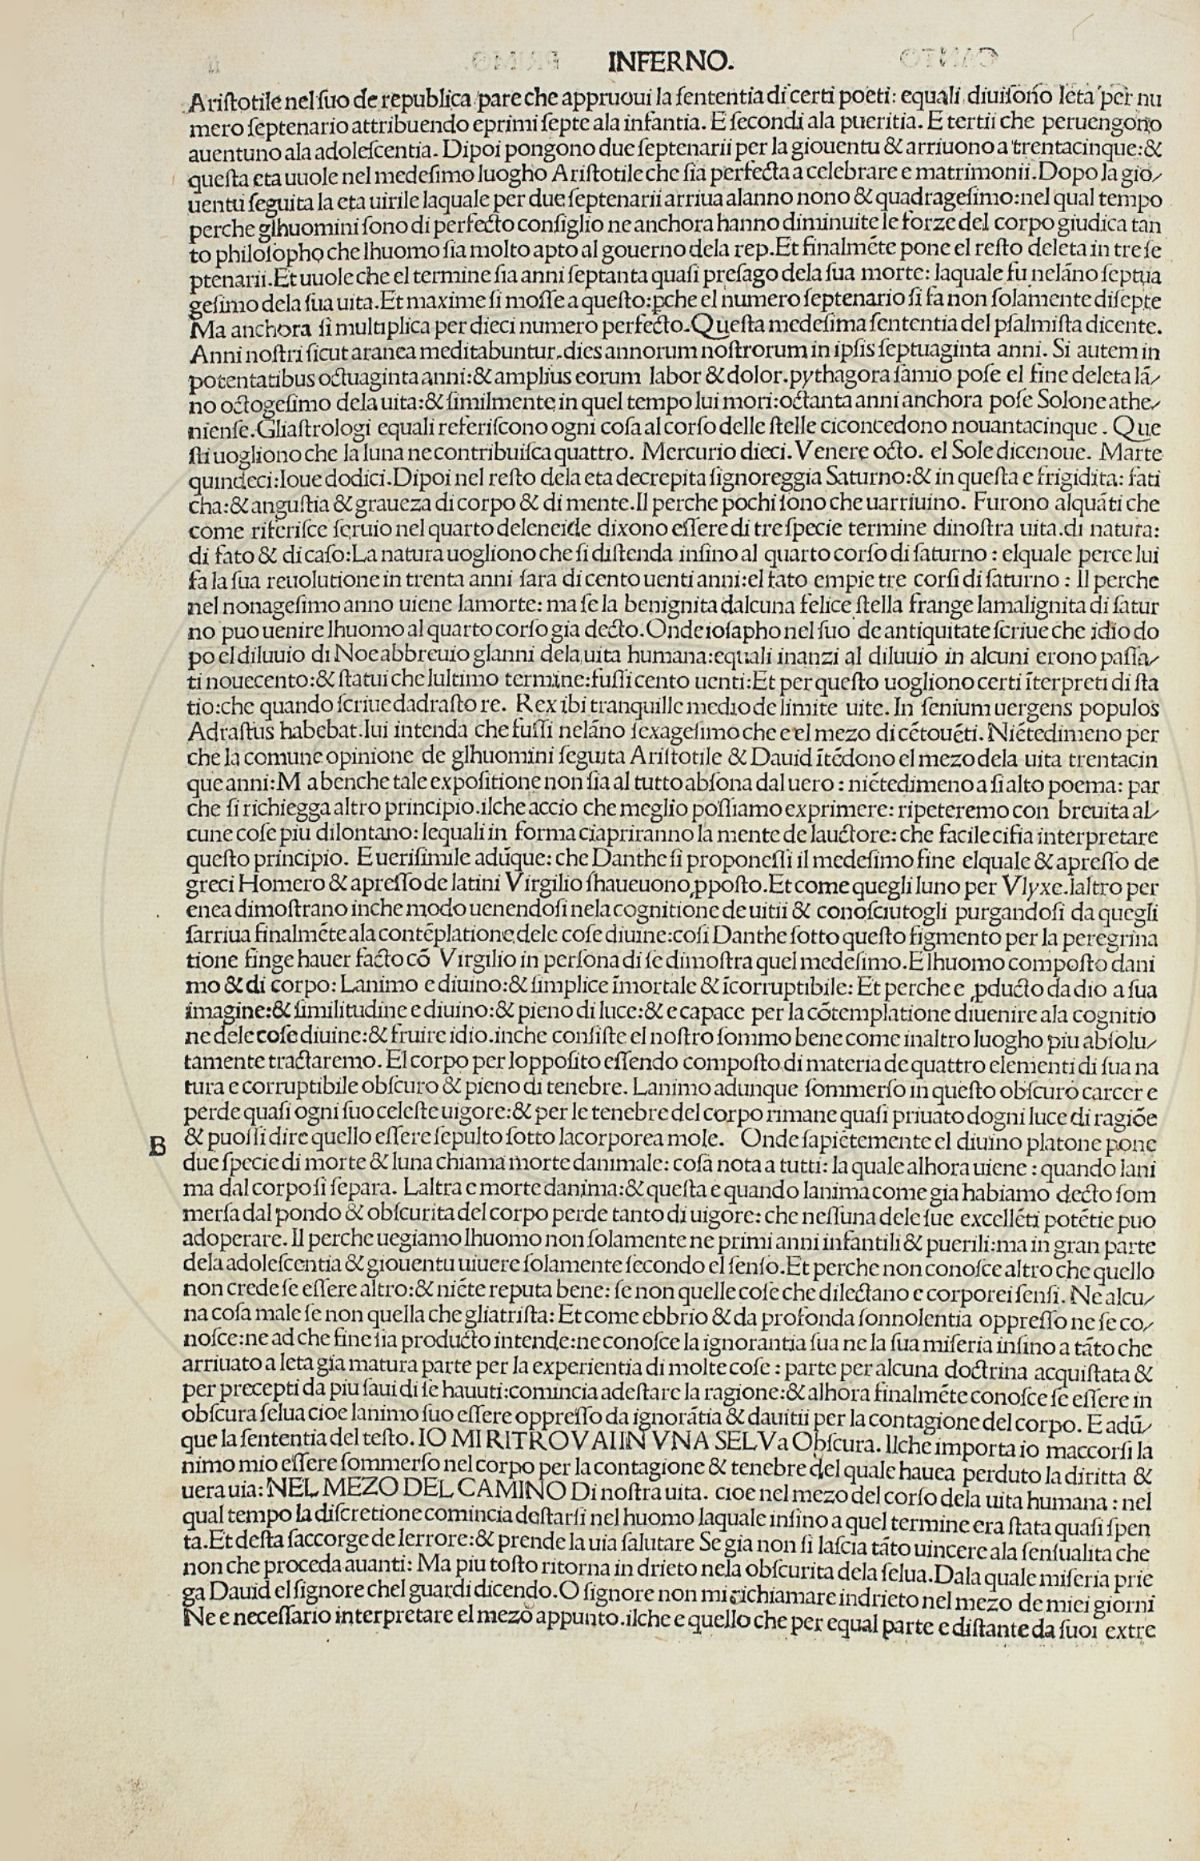 INFERNO.
Ariſtotile nel ſuo de republica pare che appruoui la ſententia di certi poeti: equali diuiſono leta per nu
mero ſeptenario attribuendo eprimi ſepte ala infantia. E ſecondi ala pueritia. E tertii che peruengono
auentuno ala adoleſcentia. Dipoi pongono due ſeptenarii per la giouentu & arriuono a trentacinque:&
queſta eta uuole nel medeſimo luogho Ariſtotile che ſia perfecta a celebrare e matrimonii. Dopo la gio⸗
uentu ſeguita la eta uirile laquale per due ſeptenarii arriua alanno nono & quadrageſimo:nel qual tempo
perche glhuomini ſono di perfecto conſiglio ne anchora hanno diminuite le forze del corpo giudica tan
to philoſopho che lhuomo ſia molto apto al gouerno dela rep. Et finalmēte pone el reſto deleta in tre ſe
ptenarii. Et uuole che el termine ſia anni ſeptanta quaſi preſago dela ſua morte: laquale fu nelāno ſeptua
geſimo dela ſua uita. Et maxime ſi moſſe a queſto:ꝑche el numero ſeptenario ſi fa non ſolamente diſepte
Ma anchora ſi multiplica per dieci numero perfecto. Queſta medeſima ſententia del pſalmiſta dicente.
Anni noſtri ſicut aranea meditabuntur. dies annorum noſtrorum in ipſis ſeptuaginta anni. Si autem in
potentatibus octuaginta anni:& amplius eorum labor & dolor. pythagora ſamio poſe el fine deleta lā⸗
no octogeſimo dela uita:& ſimilmente in quel tempo lui mori:octanta anni anchora poſe Solone athe⸗
nienſe. Gliaſtrologi equali referiſcono ogni coſa al corſo delle ſtelle ciconcedono nouantacinque. Que
ſti uogliono che la luna ne contribuiſca quattro. Mercurio dieci. Venere octo. el Sole dicenoue. Marte
quindeci:Ioue dodici. Dipoi nel reſto dela eta decrepita ſignoreggia Saturno:& in queſta e frigidita: fati
cha:& anguſtia & graueza di corpo & di mente. Il perche pochi ſono che uarriuino. Furono alquāti che
come riferiſce ſeruio nel quarto deleneide dixono eſſere di tre ſpecie termine dinoſtra uita. di natura:
di fato & di caſo: La natura uogliono che ſi diſtenda inſino al quarto corſo di ſaturno: elquale perce lui
fa la ſua reuolutione in trenta anni ſara di cento uenti anni:el fato empie tre corſi di ſaturno: Il perche
nel nonageſimo anno uiene lamorte: ma ſe la benignita dalcuna felice ſtella frange lamalignita di ſatur
no puo uenire lhuomo al quarto corſo gia decto. Onde ioſapho nel ſuo de antiquitate ſcriue che idio do
po el diluuio di Noe abbreuio glanni dela uita humana:equali inanzi al diluuio in alcuni erono paſſa⸗
ti nouecento:& ſtatui che lultimo termine:fuſſi cento uenti: Et per queſto uogliono certi īterpreti di ſta
tio:che quando ſcriue dadraſto re. Rex ibi tranquille medio de limite uite. In ſenium uergens populos
Adraſtus habebat. lui intenda che fuſſi nelāno ſexageſimo che e el mezo di cētouēti. Niētedimeno per
che la comune opinione de glhuomini ſeguita Ariſtotile & Dauid ītēdono el mezo dela uita trentacin
que anni: Ma benche tale expoſitione non ſia al tutto abſona dal uero: niētedimeno a ſi alto poema: par
che ſi richiegga altro principio. ilche accio che meglio poſſiamo exprimere: ripeteremo con breuita al⸗
cune coſe piu dilontano: lequali in forma ciapriranno la mente de lauctore: che facile cifia interpretare
queſto principio. E ueriſimile adūque: che Danthe ſi proponeſſi il medeſimo fine elquale & apreſſo de
greci Homero & apreſſo de latini Virgilio ſhaueuono ꝓpoſto. Et come quegli luno per Vlyxe. laltro per
enea dimoſtrano inche modo uenendoſi nela cognitione de uitii & conoſciutogli purgandoſi da quegli
ſarriua finalmēte ala contēplatione dele coſe diuine:coſi Danthe ſotto queſto figmento per la peregrina
tione finge hauer facto cō Virgilio in perſona di ſe dimoſtra quel medeſimo. E lhuomo compoſto dani
mo & di corpo: Lanimo e diuino:& ſimplice īmortale & īcorruptibile: Et perche e ꝓducto da dio a ſua
imagine:& ſimilitudine e diuino:& pieno di luce:& e capace per la cōtemplatione diuenire ala cognitio
ne dele coſe diuine:& fruire idio. inche conſiſte el noſtro ſommo bene come inaltro luogho piu abſolu⸗
tamente tractaremo. El corpo per loppoſito eſſendo compoſto di materia de quattro elementi di ſua na
tura e corruptibile obſcuro & pieno di tenebre. Lanimo adunque ſommerſo in queſto obſcuro carcere
perde quaſi ogni ſuo celeſte uigore:& per le tenebre del corpo rimane quaſi priuato dogni luce di ragiōe
B & puoſſi dire quello eſſere ſepulto ſotto lacorporea mole. Onde ſapiētemente el diuino platone pone
due ſpecie di morte & luna chiama morte danimale: coſa nota a tutti: la quale alhora uiene: quando lani
ma dal corpo ſi ſepara. Laltra e morte danima:& queſta e quando lanima come gia habiamo decto ſom
merſa dal pondo & obſcurita del corpo perde tanto di uigore: che neſſuna dele ſue excellēti potētie puo
adoperare. Il perche uegiamo lhuomo non ſolamente ne primi anni infantili & puerili:ma in gran parte
dela adoleſcentia & giouentu uiuere ſolamente ſecondo el ſenſo. Et perche non conoſce altro che quello
non crede ſe eſſere altro:& niēte reputa bene: ſe non quelle coſe che dilectano e corporei ſenſi. Ne alcu⸗
na coſa male ſe non quella che gliatriſta: Et come ebbrio & da profonda ſonnolentia oppreſſo ne ſe co⸗
noſce:ne ad che fine ſia producto intende:ne conoſce la ignorantia ſua ne la ſua miſeria inſino a tāto che
arriuato a leta gia matura parte per la experientia di molte coſe: parte per alcuna doctrina acquiſtata &
per precepti da piu ſaui di ſe hauuti:comincia adeſtare la ragione:& alhora finalmēte conoſce ſe eſſere in
obſcura ſelua cioe lanimo ſuo eſſere oppreſſo da ignorātia & dauitii per la contagione del corpo. E adū⸗
que la ſententia del teſto. IO MI RITROVAI IN VNA SELVa Obſcura. Ilche importa io maccorſi la
nimo mio eſſere ſommerſo nel corpo per la contagione & tenebre del quale hauea perduto la diritta &
uera uia: NEL MEZO DEL CAMINO Di noſtra uita. cioe nel mezo del corſo dela uita humana: nel
qual tempo la diſcretione comincia deſtarſi nel huomo laquale inſino a quel termine era ſtata quaſi ſpen
ta. Et deſta ſaccorge de lerrore:& prende la uia ſalutare Se gia non ſi laſcia tāto uincere ala ſenſualita che
non che proceda auanti: Ma piu toſto ritorna in drieto nela obſcurita dela ſelua. Dala quale miſeria prie
ga Dauid el ſignore chel guardi dicendo. O ſignore non mi richiamare indrieto nel mezo de miei giorni
Ne e neceſſario interpretare el mezo appunto. ilche e quello che per equal parte e diſtante da ſuoi extre